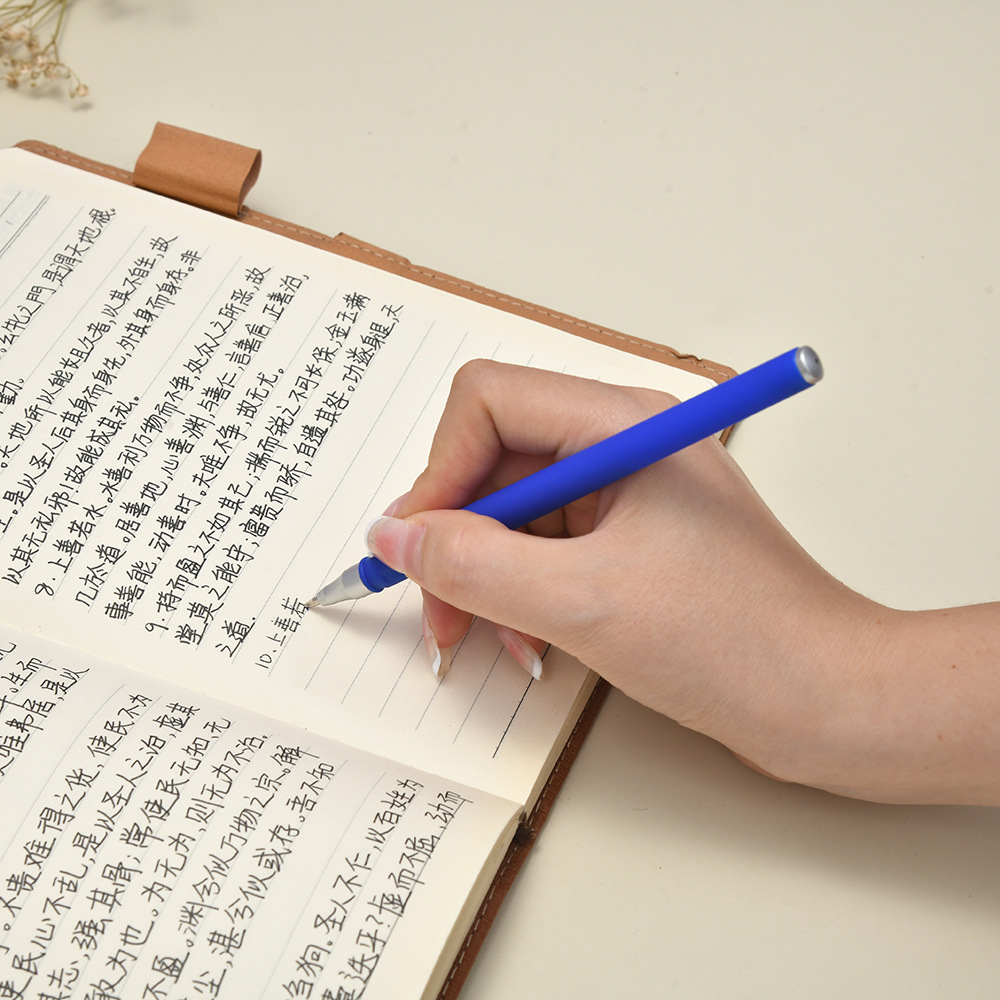 生而
夫唯弗居,是以
。不贵难得之货,使民不为
使民心不乱,是以圣人之治,虚其
其志,强其骨;常使民无知,无
敢为也。为无为,则无内不治。
不盈。渊兮似万物之宗。解
尘,湛兮似或存。吾不知
刍狗。圣人不仁,以百姓为
乎?虚而不屈,动而
牝之門,是谓天地根。
勤。
天地所以能长且久者,以其不自生,故
生。是以圣人后其身而身先,外其身而身存。非
以其无私邪!故能成其私。
8. 上善若水。水善利万物而不争,处众人之所恶,故
几於道。居善地,心善渊,与善仁,言善信,正善治,
事善能,动善时。夫唯不争,故无尤。
9. 持而盈之不如其已;揣而锐之不可长保,金玉满
堂莫之能守;富贵而骄,自遗其咎。功遂身退,天
之道。
10. 上善若